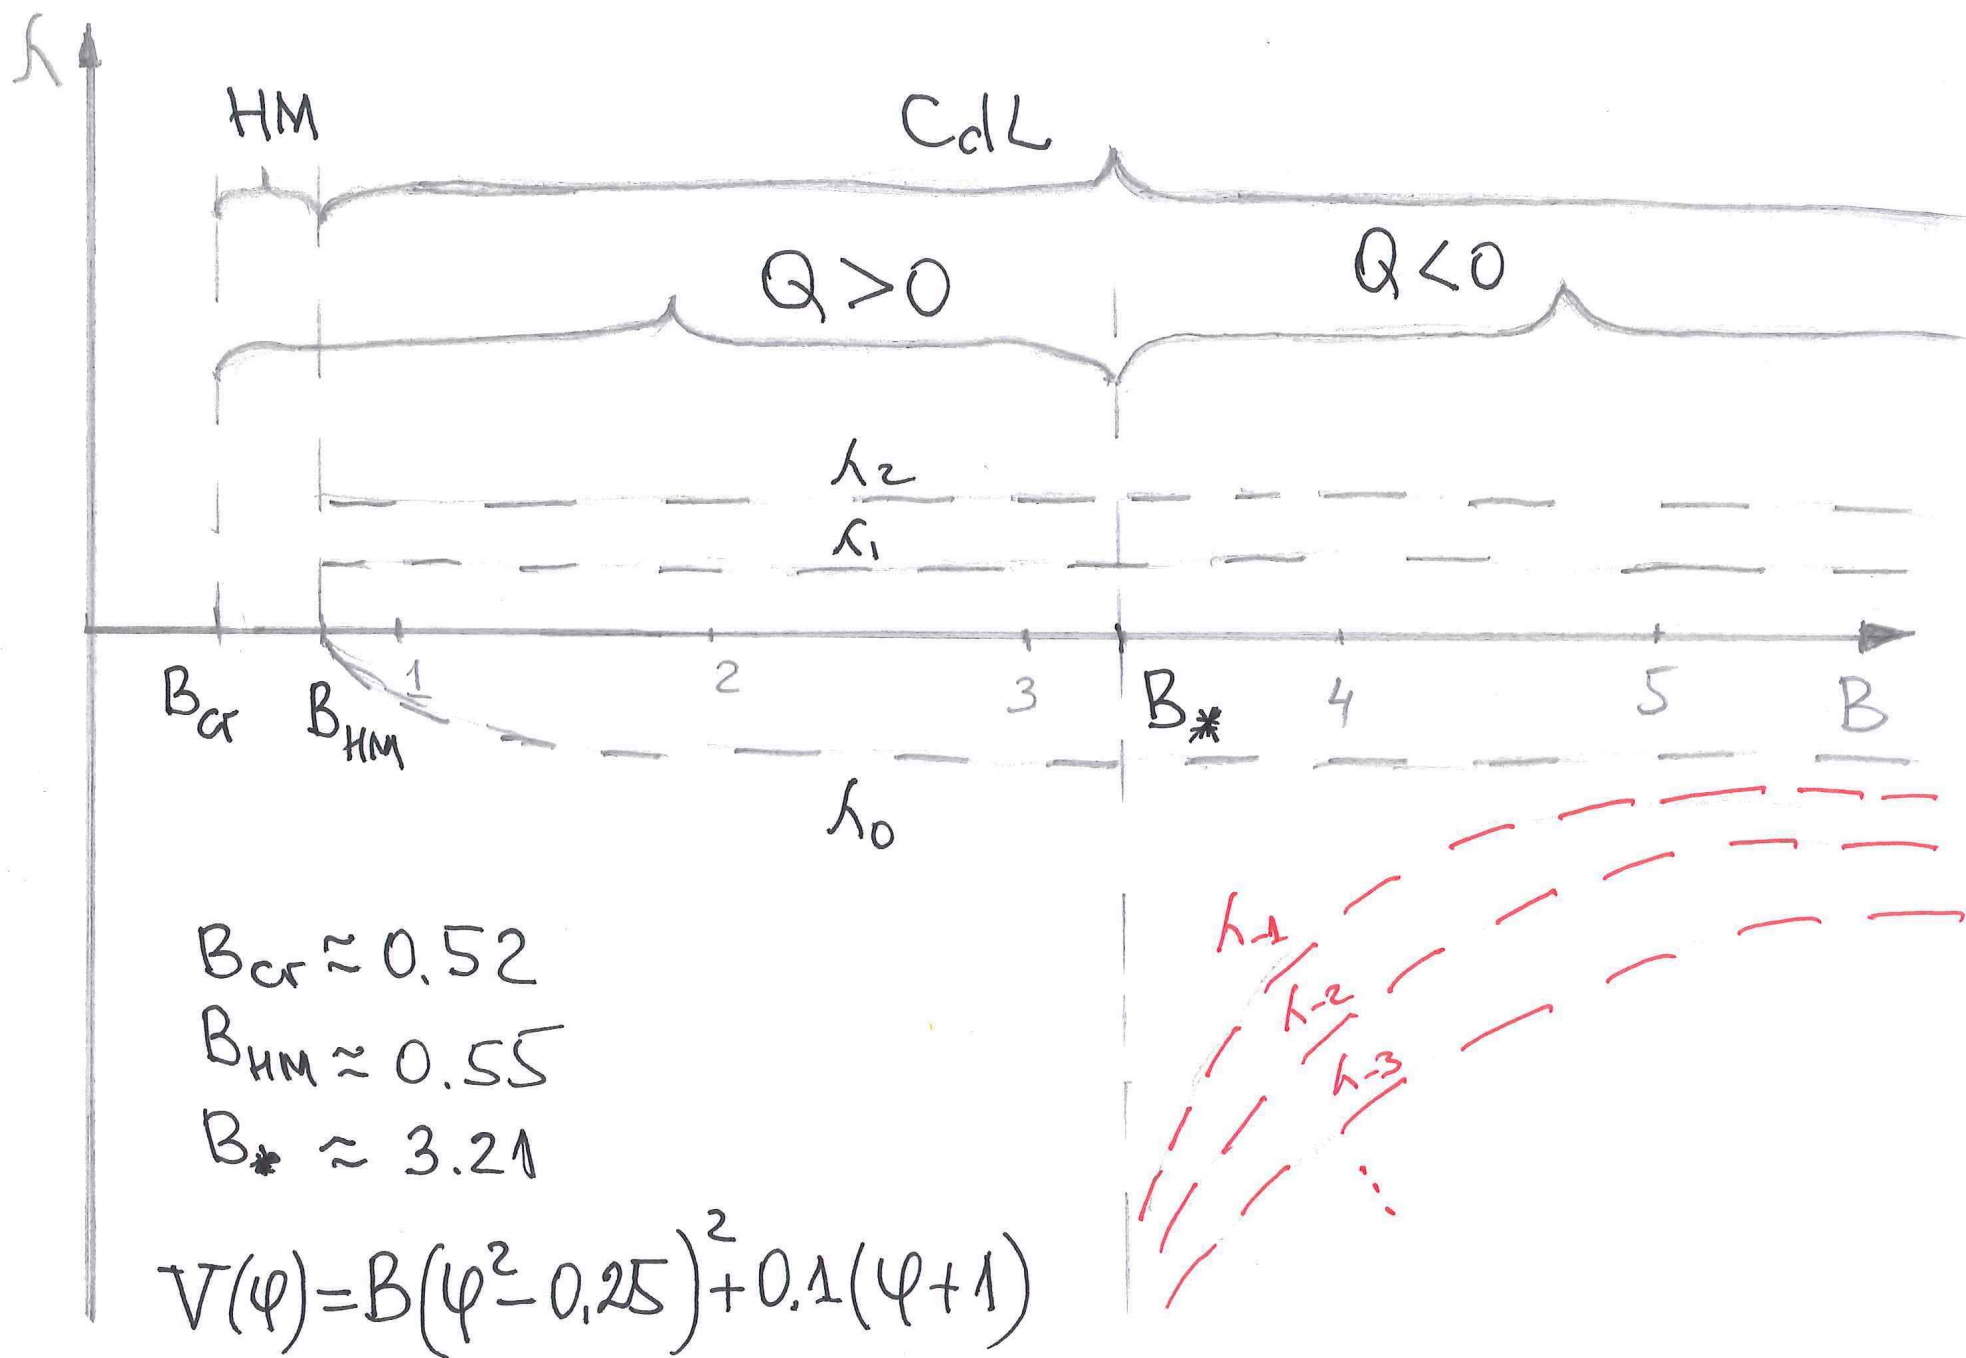 λ
HM
CdL
Q>0
Q<0
λ2
λ1
1
2
3
4
5
B
Bcr
BHM
B*
λ0
λ-1
λ-2
λ-3
Bcr ≈ 0.52
BHM ≈ 0.55
B* ≈ 3.21
V(φ)=B(φ²-0,25)²+0.1(φ+1)